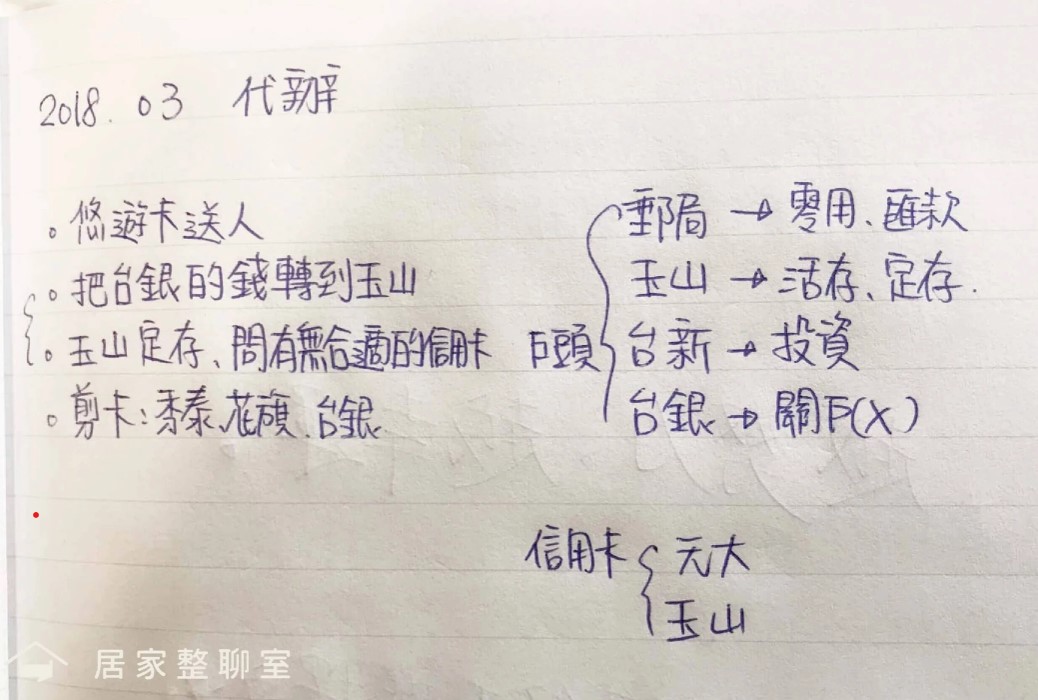 2018.03 代辦
。悠遊卡送人
。把台銀的錢轉到玉山
。玉山定存、問有無合適的信用卡
。剪卡:季泰、花旗、台銀
戶頭
郵局 → 零用、匯款
玉山 → 活存、定存.
台新 → 投資
台銀 → 關戶(X)
信用卡
元大
玉山
居家整聊室